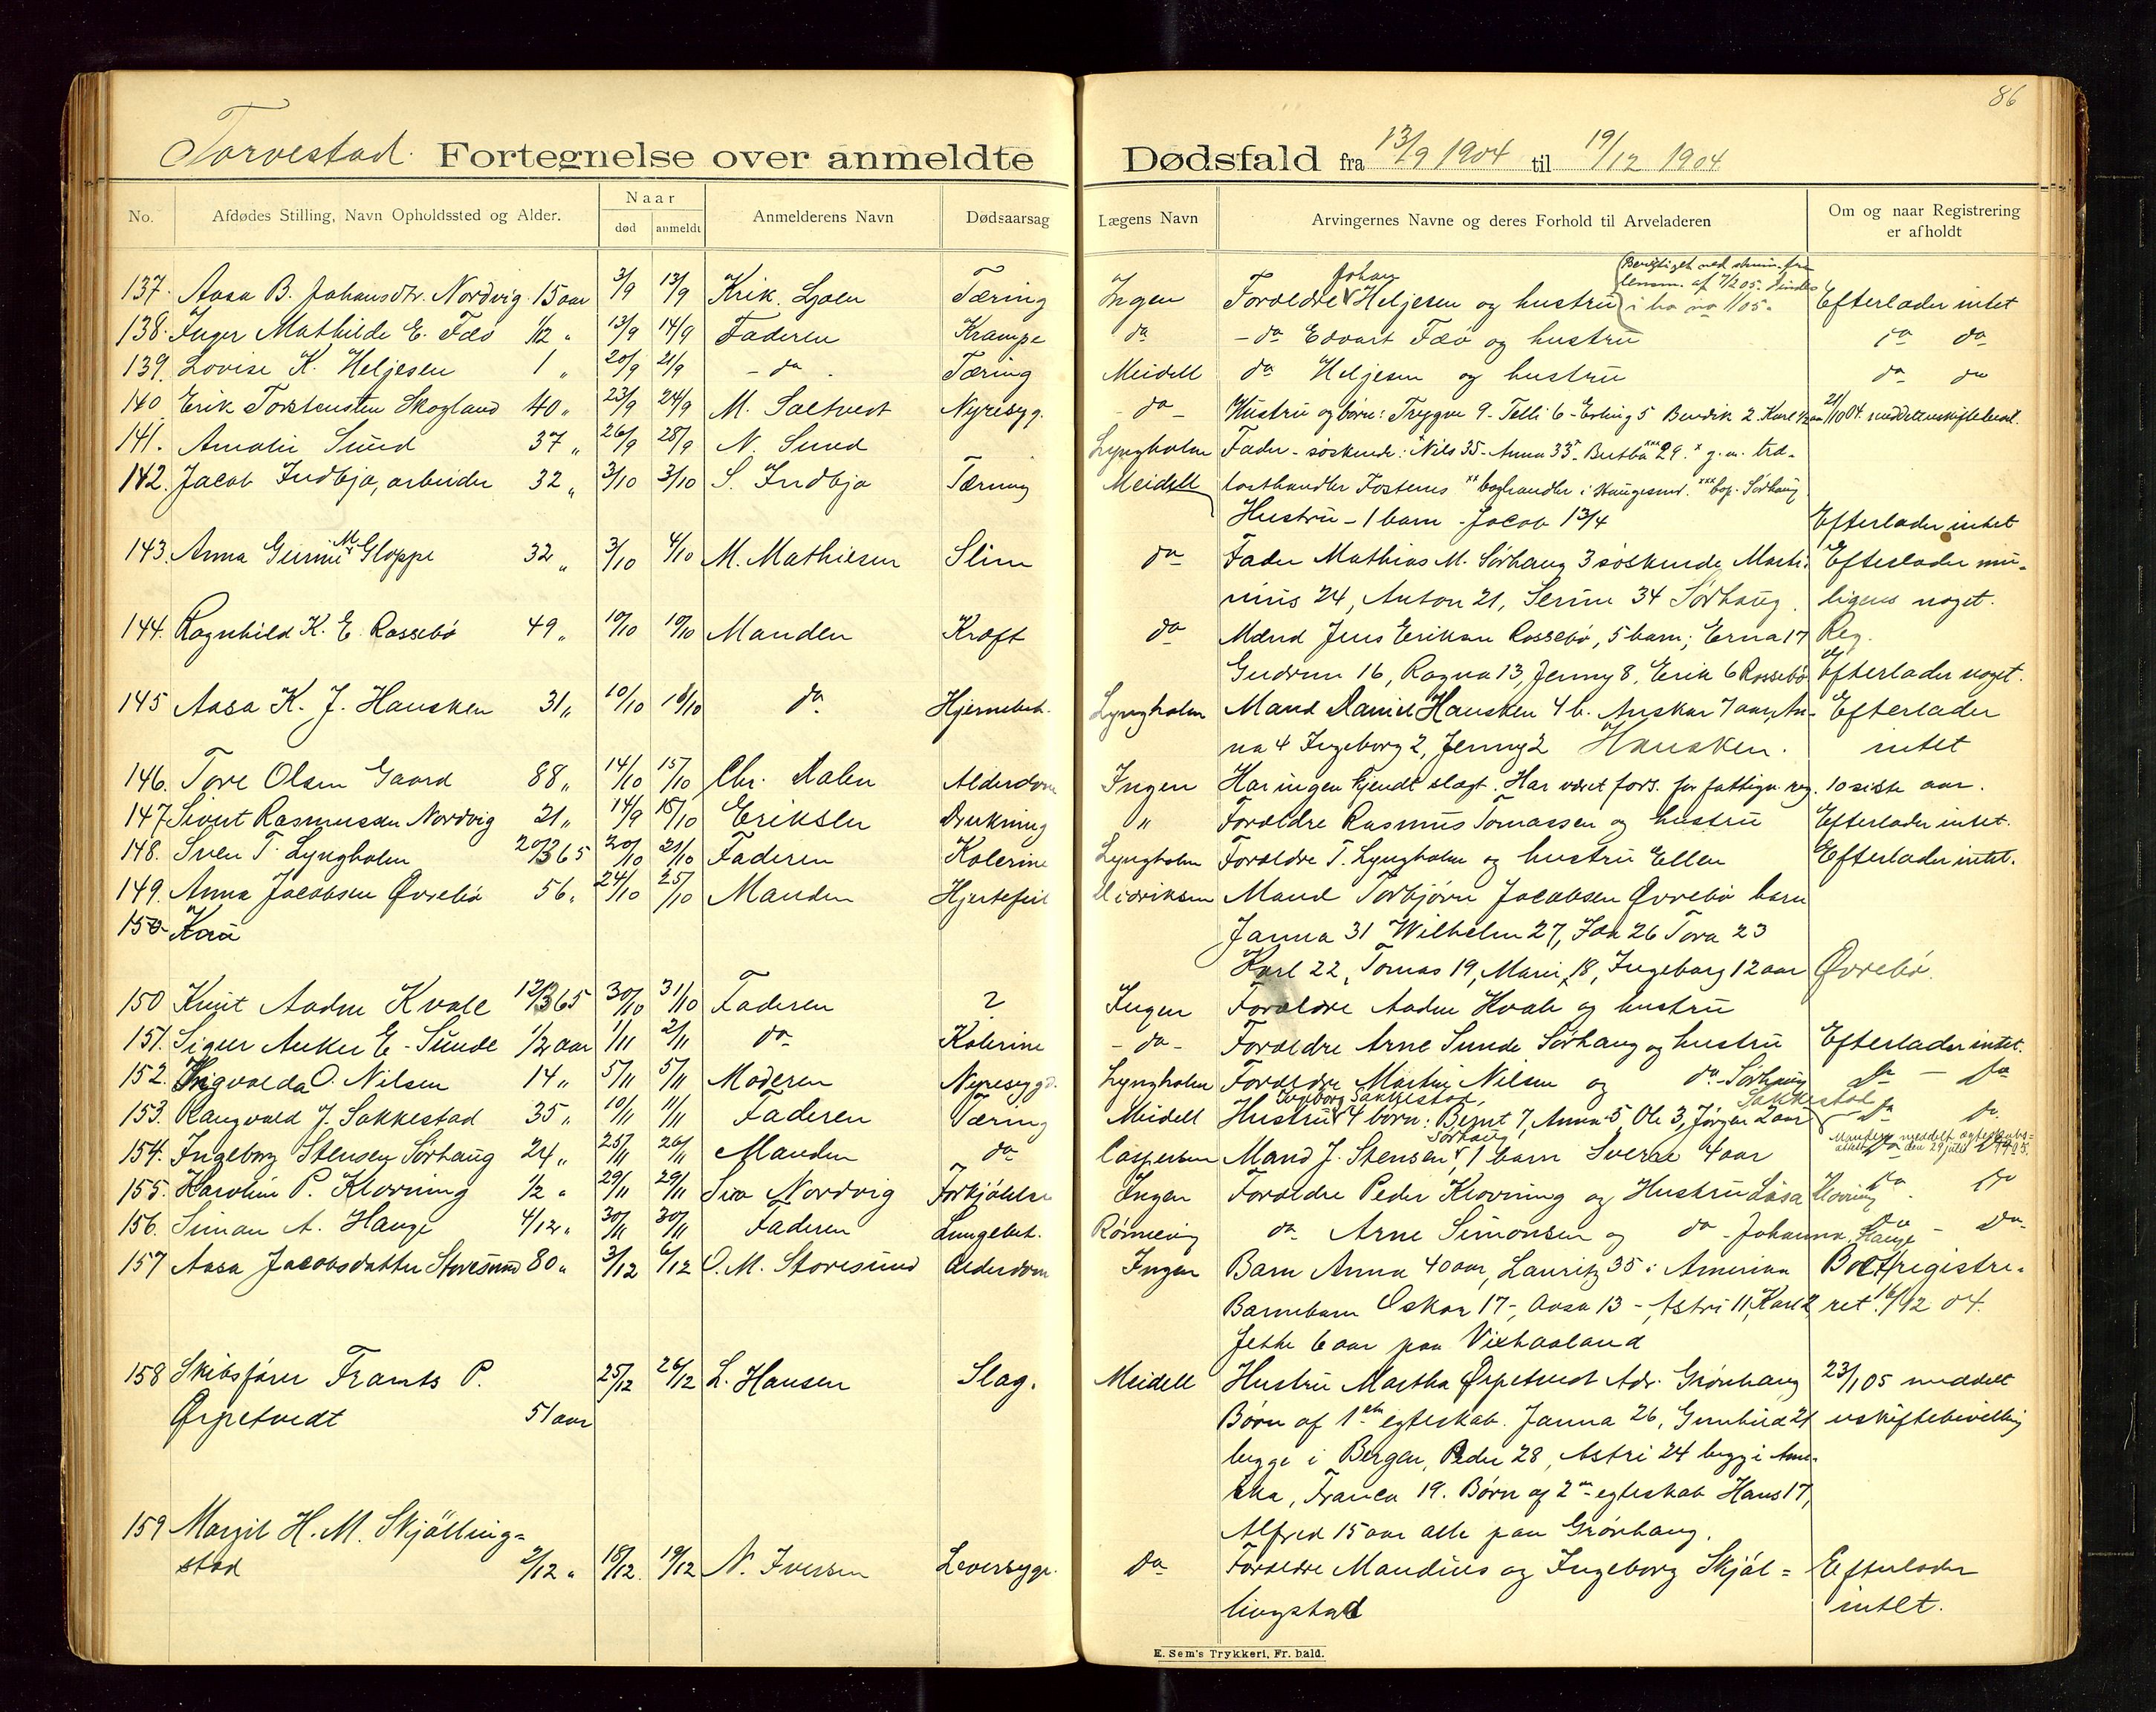 86
Torvestad. Fortegnelse over anmeldte Dødsfald fra 13/9 1904 til 19/12 1904
No. Afdødes Stilling, Navn Opholdssted og Alder. Naar død anmeldt Anmelderens Navn Dødsaarsag Lægens Navn Arvingernes Navne og deres Forhold til Arveladeren Om og naar Registrering er afholdt
137. Aasa B. Johansdtr. Nordvig 15 aar 3/9 13/9 Tæring Ingen Forældre Johan Heljesen og hustru Efterlader intet
138. Inger Mathilde E. Fæø 1/12 " 13/9 14/9 Faderen Krampe do - do Edvart Fæø og hustru do do
139. Lovise K. Heljesen 1 " 20/9 21/9 - do - Tæring Meidell do Heljesen og hustru do do
140 Erik Torstensen Skogland 40 " 23/9 24/9 M. Saltvedt Nyresyg. - do - Hustru og børn: Trygve 9 - Telli 6 - Erling 5 Bendik 2 Karl 1/2 aar
141. Amalie Sund 37 " 26/9 28/9 N. Sund Lyngholm Fader - søskende: Nils 35 - Anna 33 - Bertha 29. x g. m. tra-
142. Jacob Indbjo, arbeider 32 " 3/10 3/10 S. Indbjo Tæring Meidell lasthandler Fosternes xx boghandler i Haugesund. xxx bop. Sørhaug
Hustru - 1 barn - Jacob 13/4 Efterlader intet
143. Anna Gurine M. Gloppe 32 " 3/10 4/10 M. Mathiesen Slim do Fader Mathias M. Sørhaug 3 søskende Marti- Efterlader mu-
nius 24, Anton 21, Serine 34 Sørhaug. ligens noget.
144. Ragnhild K. E. Rossebø 49 " 10/10 10/10 Manden Kræft do Mand Jens Eriksen Rossebø, 5 barn; Erna 17 Reg.
Gudrun 16, Ragna 13, Jenny 8, Erik 6 Rossebø Efterlader noget.
145 Aasa K. J. Hausken 31 " 10/10 10/10 do Hjernebet. Lyngholm Mand Daniel Hausken 4 b. Anskar 7 aar, An- Efterlader
na 4 Ingeborg 2, Jenny 2 Hausken. intet
146. Tore Olsen Gaard 88 " 14/10 15/10 Chr. Dalen Alderdom Ingen Har ingen kjendt slægt. Har været fors. for fattigv. reg. 10 siste aar.
147. Sivert Rasmussen Nordvig 21 " 14/9 15/10 Eriksen Drukning " Forældre Rasmus Tomassen og hustru Efterlader intet.
148. Sven T. Lyngholm 20/365 20/10 21/10 Faderen Kolerine Lyngholm Forældre T. Lyngholm og hustru Ellen Efterlader intet.
149. Anna Jacobsen Øvrebø 56 " 24/10 25/10 Manden Hjertefeil Didriksen Mand Torbjørn Jacobsen Øvrebø barn
150
Janna 31 Wilhelm 27, Ida 26 Tora 23
Karl 22, Tomas 19, Marie 18, Ingeborg 12 aar Øvrebø.
150 Knut Aadne Kvale 12/365 30/10 31/10 Faderen ? Ingen Forældre Aadne Kvale og hustru
151. Sigur Anker E. Sunde 1/2 aar 1/11 2/11 do Kolerine - do - Forældre Arne Sunde Sørhaug og hustru Efterlader intet.
152. Ingvalda O. Nilsen 14 " 5/11 5/11 Moderen Nyresygd. Lyngholm Forældre Martin Nilsen og do - Sørhaug do - do
153. Rangvald J. Sakkestad 35 " 10/11 11/11 Faderen Tæring Meidell Hustru Ingeborg Sakkestad, 4 børn: Bernt 7, Anna 5, Ole 3, Jørgen 2 aar Sakkestad do do.
154. Ingeborg Stensen Sørhaug 24 " 25/11 26/11 Manden do Caspersen Mand J. Stensen Sørhaug, 1 barn Sverre 4 aar
155. Karoline P. Klovning 1/2 " 29/11 29/11 Siv Nordvig Forkjølelse Ingen Forældre Peder Klovning og Hustru Lisa Klovning do do
156. Simon A. Hauge 4/12 " 30/11 30/11 Faderen Lungebet. Rønnevig do Arne Simonsen og do - Johanna Hauge do - do
157 Aasa Jacobsdatter Storesund 80 " 3/12 6/12 O. M. Storesund Alderdom Ingen Barn Anna 40 aar, Lauritz 35 i Amerika Boet registre-
Barnebarn Oskar 17 -, Aasa 13 -, Astri 11, Karl 2, ret 16/12 04.
Jethe 6 aar paa Vixhaaland
158 Skibsfører Frants P. 25/12 26/12 L. Hansen Slag. Meidell Hustru Martha Ørpetvedt Adr. Grønhaug 23/1 05 meddelt
Ørpetvedt 51 aar Børn af 1ste egteskab. Janna 26, Gunhild 21 uskiftebevilling
begge i Bergen, Peder 28, Astri 24 begge i Ame-
rika, Franca 19. Børn af 2. egteskab Hans 17,
Alfred 15 aar alle paa Grønhaug.
159 Margit H. M. Skjølling-
stad 2/12 " 18/12 19/12 N. Iversen Leversyge. do Forældre Mandius og Ingeborg Skjøl- Efterlader
lingstad intet.
E. Sem's Trykkeri, Fr. hald.